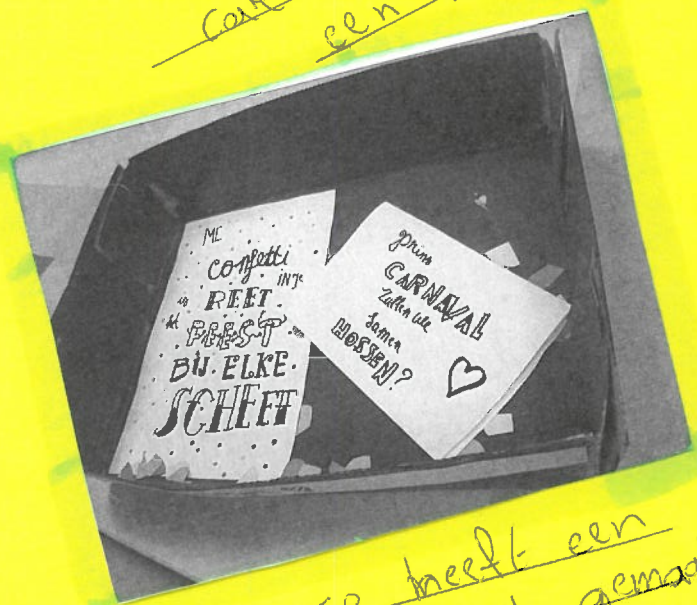 een
ME
confetti
IN 'T
REET
is
het FEEST
BIJ ELKE
SCHEET
Prins
CARNAVAL
Zullen we
samen
HOSSEN?
heeft een